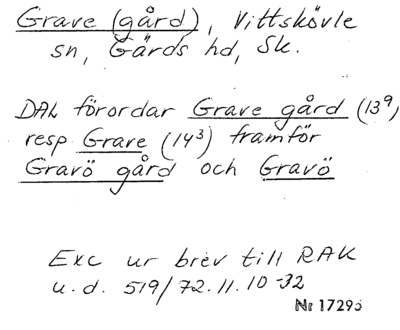 Grave (gård), Vittskövle
sn, Gärds hd, Sk.
DAL förordar Grave gård (13⁹)
resp Grave (14³) framför
Gravö gård och Gravö
Exc ur brev till RAK
u.d. 519/72.11.10-32
Nr 17295